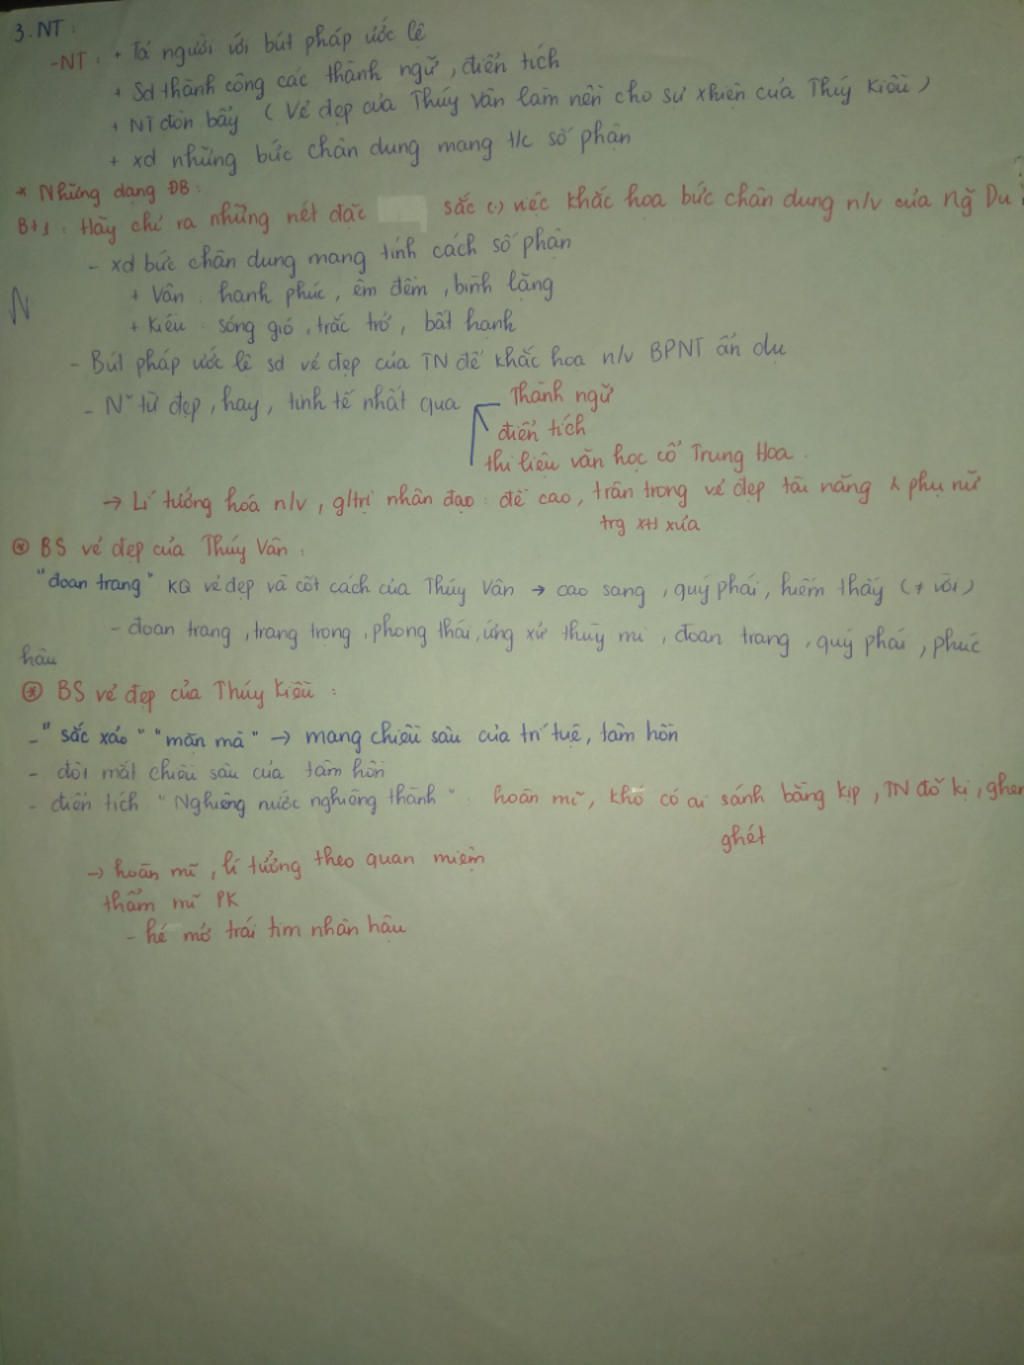 3. NT :
- NT : + Tả người với bút pháp ước lệ
+ Sd thành công các thành ngữ, điển tích
+ NT đòn bẩy ( Vẻ đẹp của Thúy Vân làm nền cho sự xhiện của Thúy Kiều )
+ xd những bức chân dung mang t/c số phận
* Những dạng ĐB :
Bt1 : Hãy chỉ ra những nét đặc sắc (.) việc khắc họa bức chân dung n/v của Ng~ Du
- xd bức chân dung mang tính cách số phận
+ Vân : hạnh phúc, êm đềm, bình lặng
+ Kiều : sóng gió, trắc trở, bất hạnh
- Bút pháp ước lệ sd vẻ đẹp của TN để khắc họa n/v BPNT ẩn dụ
- N~ từ đẹp, hay, tinh tế nhất qua Thành ngữ
điển tích
thi liệu văn học cổ Trung Hoa.
→ Lí tưởng hóa n/v, g/trị nhân đạo : đề cao, trân trọng vẻ đẹp tài năng & phụ nữ
trg xh xưa
* BS vẻ đẹp của Thúy Vân :
"đoan trang" KQ vẻ đẹp và cốt cách của Thúy Vân → cao sang, quý phái, hiếm thấy ( ≠ vời )
- đoan trang, trang trọng, phong thái, ứng xử thùy mị, đoan trang, quý phái, phúc
hậu
* BS vẻ đẹp của Thúy Kiều :
- "sắc xảo" "mặn mà" → mang chiều sâu của trí tuệ, tâm hồn
- đôi mắt chiều sâu của tâm hồn
- điển tích "Nghiêng nước nghiêng thành" : hoàn mĩ, khó có ai sánh bằng kịp, TN đố kị, ghen
ghét
→ hoàn mĩ, lí tưởng theo quan miệm
thẩm mĩ PK
- hé mở trái tim nhân hậu